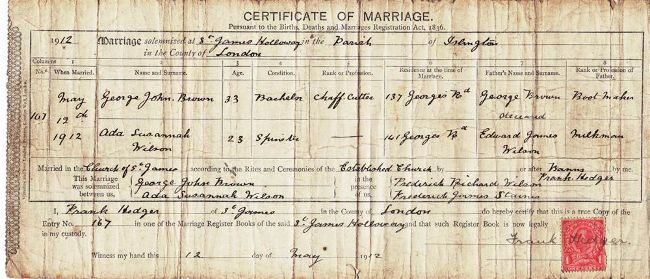 CERTIFICATE OF MARRIAGE.
Pursuant to the Births, Deaths and Marriages Registration Act, 1836.
1912 Marriage solemnized at St James Holloway in the Parish of Islington
in the County of London
Columns 1 2 3 4 5 6 7 8
No. When Married. Name and Surname. Age. Condition. Rank or Profession. Residence at the time of Marriage. Father's Name and Surname. Rank or Profession of Father.
167 May 12th 1912 George John Brown 33 Bachelor Chaff Cutter 137 Georges Rd George Brown deceased Boot Maker
Ada Susannah Wilson 23 Spinster — 141 Georges Rd Edward James Wilson Milkman
Married in the Church of St James according to the Rites and Ceremonies of the Established Church by or after Banns by me.
Frank Hedger
This Marriage was solemnized between us, George John Brown in the presence of us Frederick Richard Wilson
Ada Susannah Wilson Frederick James
I, Frank Hedger of St James in the County of London do hereby certify that this is a true Copy of the
Entry No. 167 in one of the Marriage Register Books of the said St James Holloway and that such Register Book is now legally
in my custody.
Frank Hedger.
Witness my hand this 12 day of May 1912